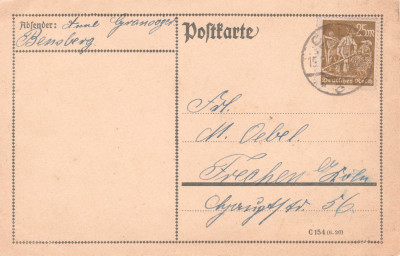 Absender: Anne
Bensberg.
Postkarte
25 M
Deutsches Reich
Frl.
M. Oebel.
Frechen b/Köln
Hauptstr. 56.
C 154